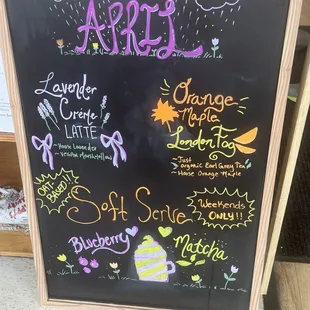 APRIL
Lavender
Crème
LATTE
~ House Lavender
~ Vegan Marshmallow
Orange
Maple
London Fog
~ Just
Organic Earl Grey Tea
~ House Orange Maple
OAT
BASED
Soft Serve
Weekends
ONLY!!
Blueberry
Matcha